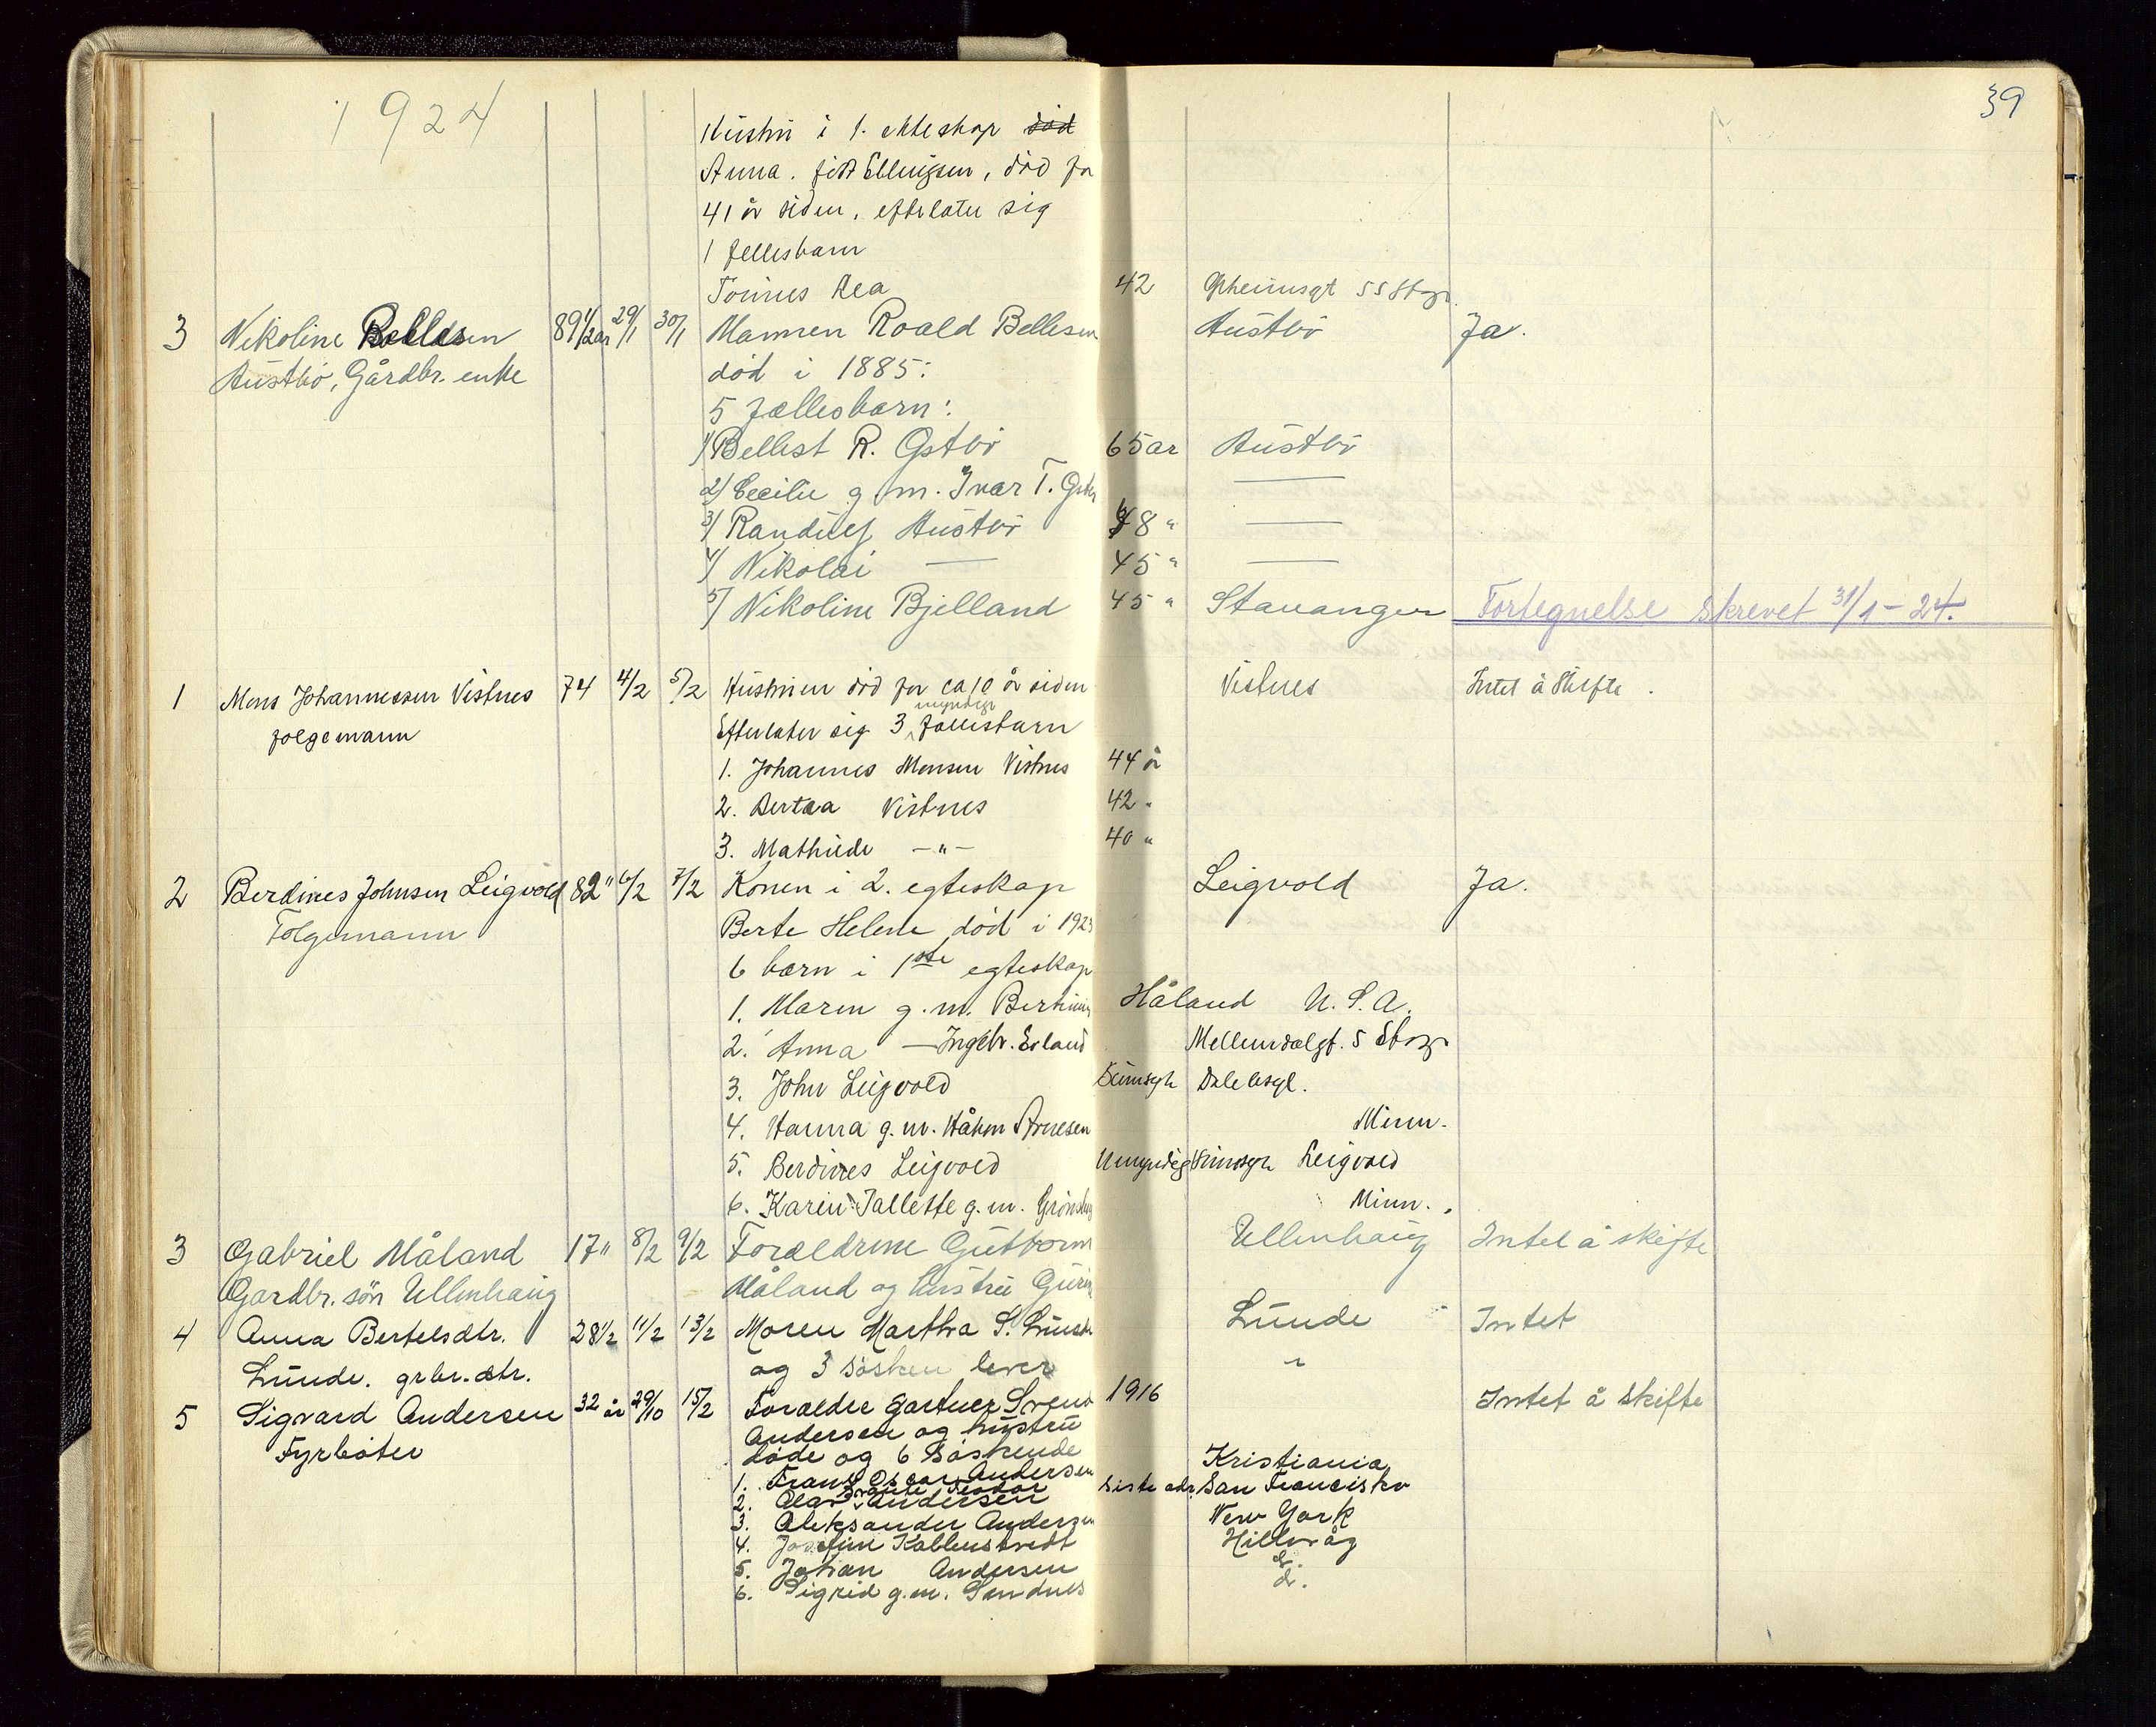 1924
39
Hustru i 1. ekteskap død
Anna. født Ellingsen, død for
41 år siden, efterlater sig
1 fellesbarn
Tønnes Rea 42 55 Stvgr.
3 Nikoline Bellesen 89 1/2 år 29/1 30/1 Mannen Roald Bellesen Austbö Ja.
Austbö, Gårdbr. enke død i 1885:
5 fællesbarn:
1/ Bellest R. Østbö 65 år Austbö
2/ Cecilie g. m. Ivar T. —
3/ Randulf Austbö 48 " —
4/ Nikolai — 45 " —
5/ Nikoline Bjelland 45 " Stavanger Fortegnelse skrevet 31/1-24.
1 Mons Johannessen Vistnes 74 4/2 5/2 Hustruen død for ca 10 år siden Vistnes Intet å skifte.
folgemann Efterlater sig 3 myndige fællesbarn
1. Johannes Monsen Vistnes 44 år
2. Bertea Vistnes 42 "
3. Mathilde —"— 40 "
2 Berdines Johnsen Leigvold 82 " 6/2 7/2 Konen i 2. egteskap Leigvold Ja.
Folgemann Berte Helene død i 1923
6 barn i 1ste egteskap
1. Maren g. m. Bertinius Håland U. S. A.
2. Anna — Ingebr. Erland Mellemdalgt. 5 Stvgr
3. John Leigvold Sinnsyk Dale asyl.
4. Hanna g. m. Håkon Arnesen Minn.
5. Berdines Leigvold Umyndig sinnsyk Leigvold
6. Karen Tallette g. m. Minn.
3 Gabriel Måland 17 " 8/2 9/2 Forældrene Gutborm Ullenhaug Intet å skifte
Gardbr. sön Ullenhaug Måland og hustru Guri
4 Anna Bertelsdtr. 28 1/2 11/2 13/2 Moren Martha S. Lunde Lunde Intet
Lunde. grbr. dtr. og 3 søsken lever "
5 Sigvard Andersen 32 år 29/10 15/2 Forældre gartner Svend 1916 Intet å skifte
Fyrböter Andersen og hustru
døde og 6 søskende
1. Frans Oscar Andersen Kristiania
2. Andersen Siste adr. San Francisko
3. Aleksander Andersen New York
4. Josefine Hillevåg
5. Johan Andersen d.
6. Sigrid g. m. Sandnes d.